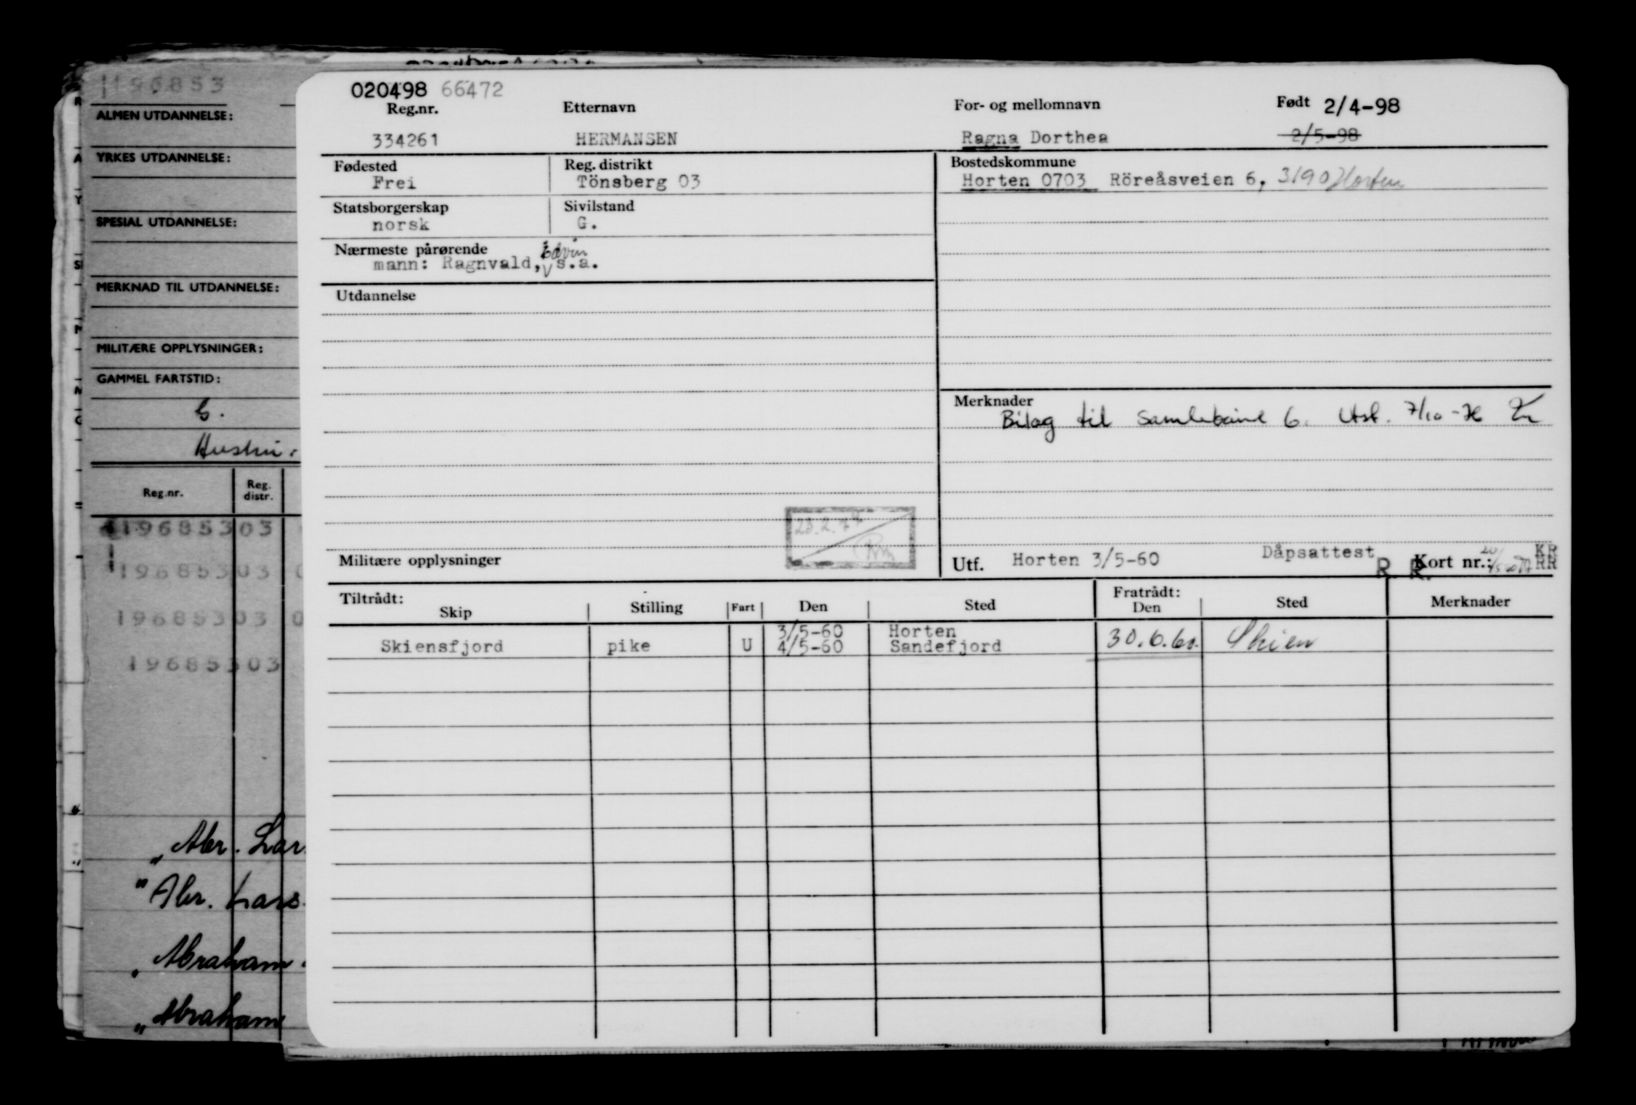 196853
ALMEN UTDANNELSE:
YRKES UTDANNELSE:
SPESIAL UTDANNELSE:
MERKNAD TIL UTDANNELSE:
MILITÆRE OPPLYSNINGER:
GAMMEL FARTSTID:
G.
Hustru.
Reg.nr. Reg. distr.
19685303
19685303
19685303
19685303
„ Abr. Lar
" Abr. Lars
„ Abraham
„ Abraham
020498 66472
Reg.nr. Etternavn For- og mellomnavn Født 2/4-98
334261 HERMANSEN Ragna Dorthea 2/5-98
Fødested Reg. distrikt Bostedskommune
Frei Tönsberg 03 Horten 0703 Röreåsveien 6, 3190 Horten
Statsborgerskap Sivilstand
norsk G.
Nærmeste pårørende Edvin
mann: Ragnvald, s.a.
Utdannelse
Merknader
Bilag til 6. Utst. 7/10-
Militære opplysninger
Utf. Horten 3/5-60 Dåpsattest R. R. Kort nr.: KR RR
Tiltrådt: Fratrådt:
Skip Stilling Fart Den Sted Den Sted Merknader
3/5-60 Horten
Skiensfjord pike U 4/5-60 Sandefjord 30.6.60. Skien